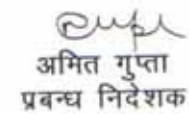 अमित गुप्ता
प्रबन्ध निदेशक